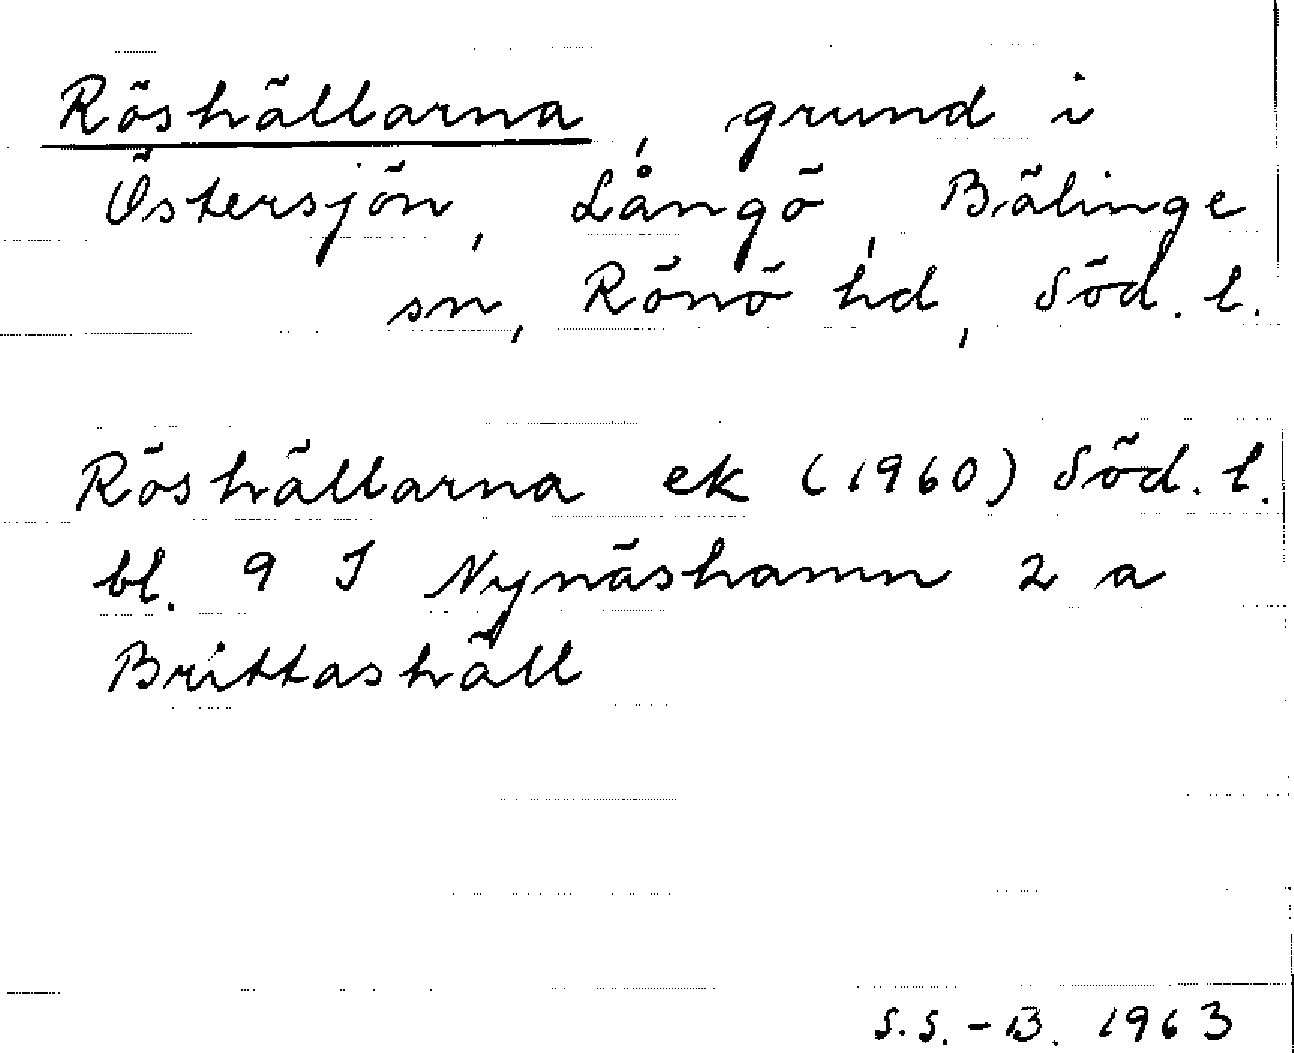 Röshällarna, grund i
Östersjön, Långö, Bälinge
sn, Rönö hd, Söd. l.
Röshällarna ek (1960) Söd. l.
bl. 9 I Nynäshamn 2 a
Brittashäll
S.S.-B. 1963